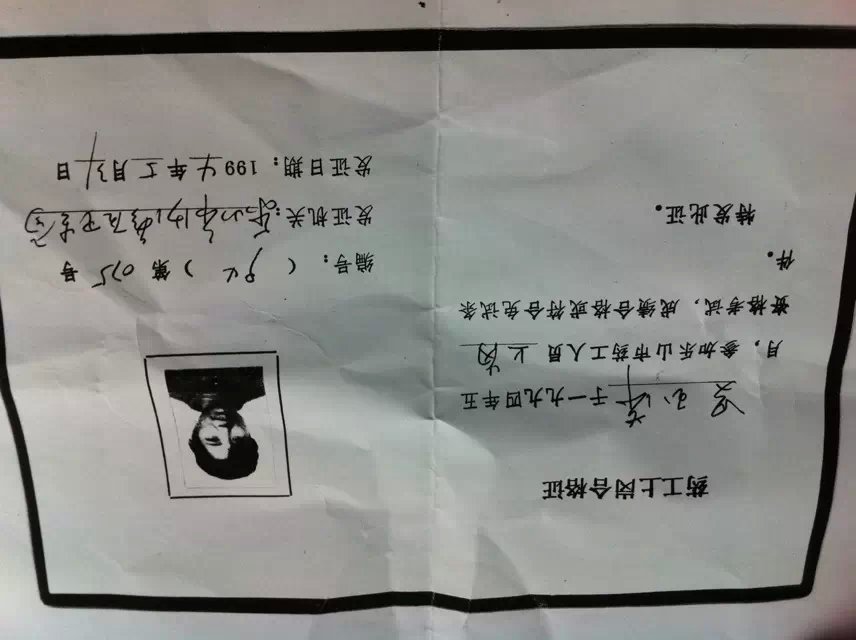 药工上岗合格证
于一九九四年五
月，参加乐山市药工人员上岗
资格考试，成绩合格或符合免试条
件。
特发此证。
编号：（94）第075号
发证机关：乐山市
发证日期：1994年5月31日